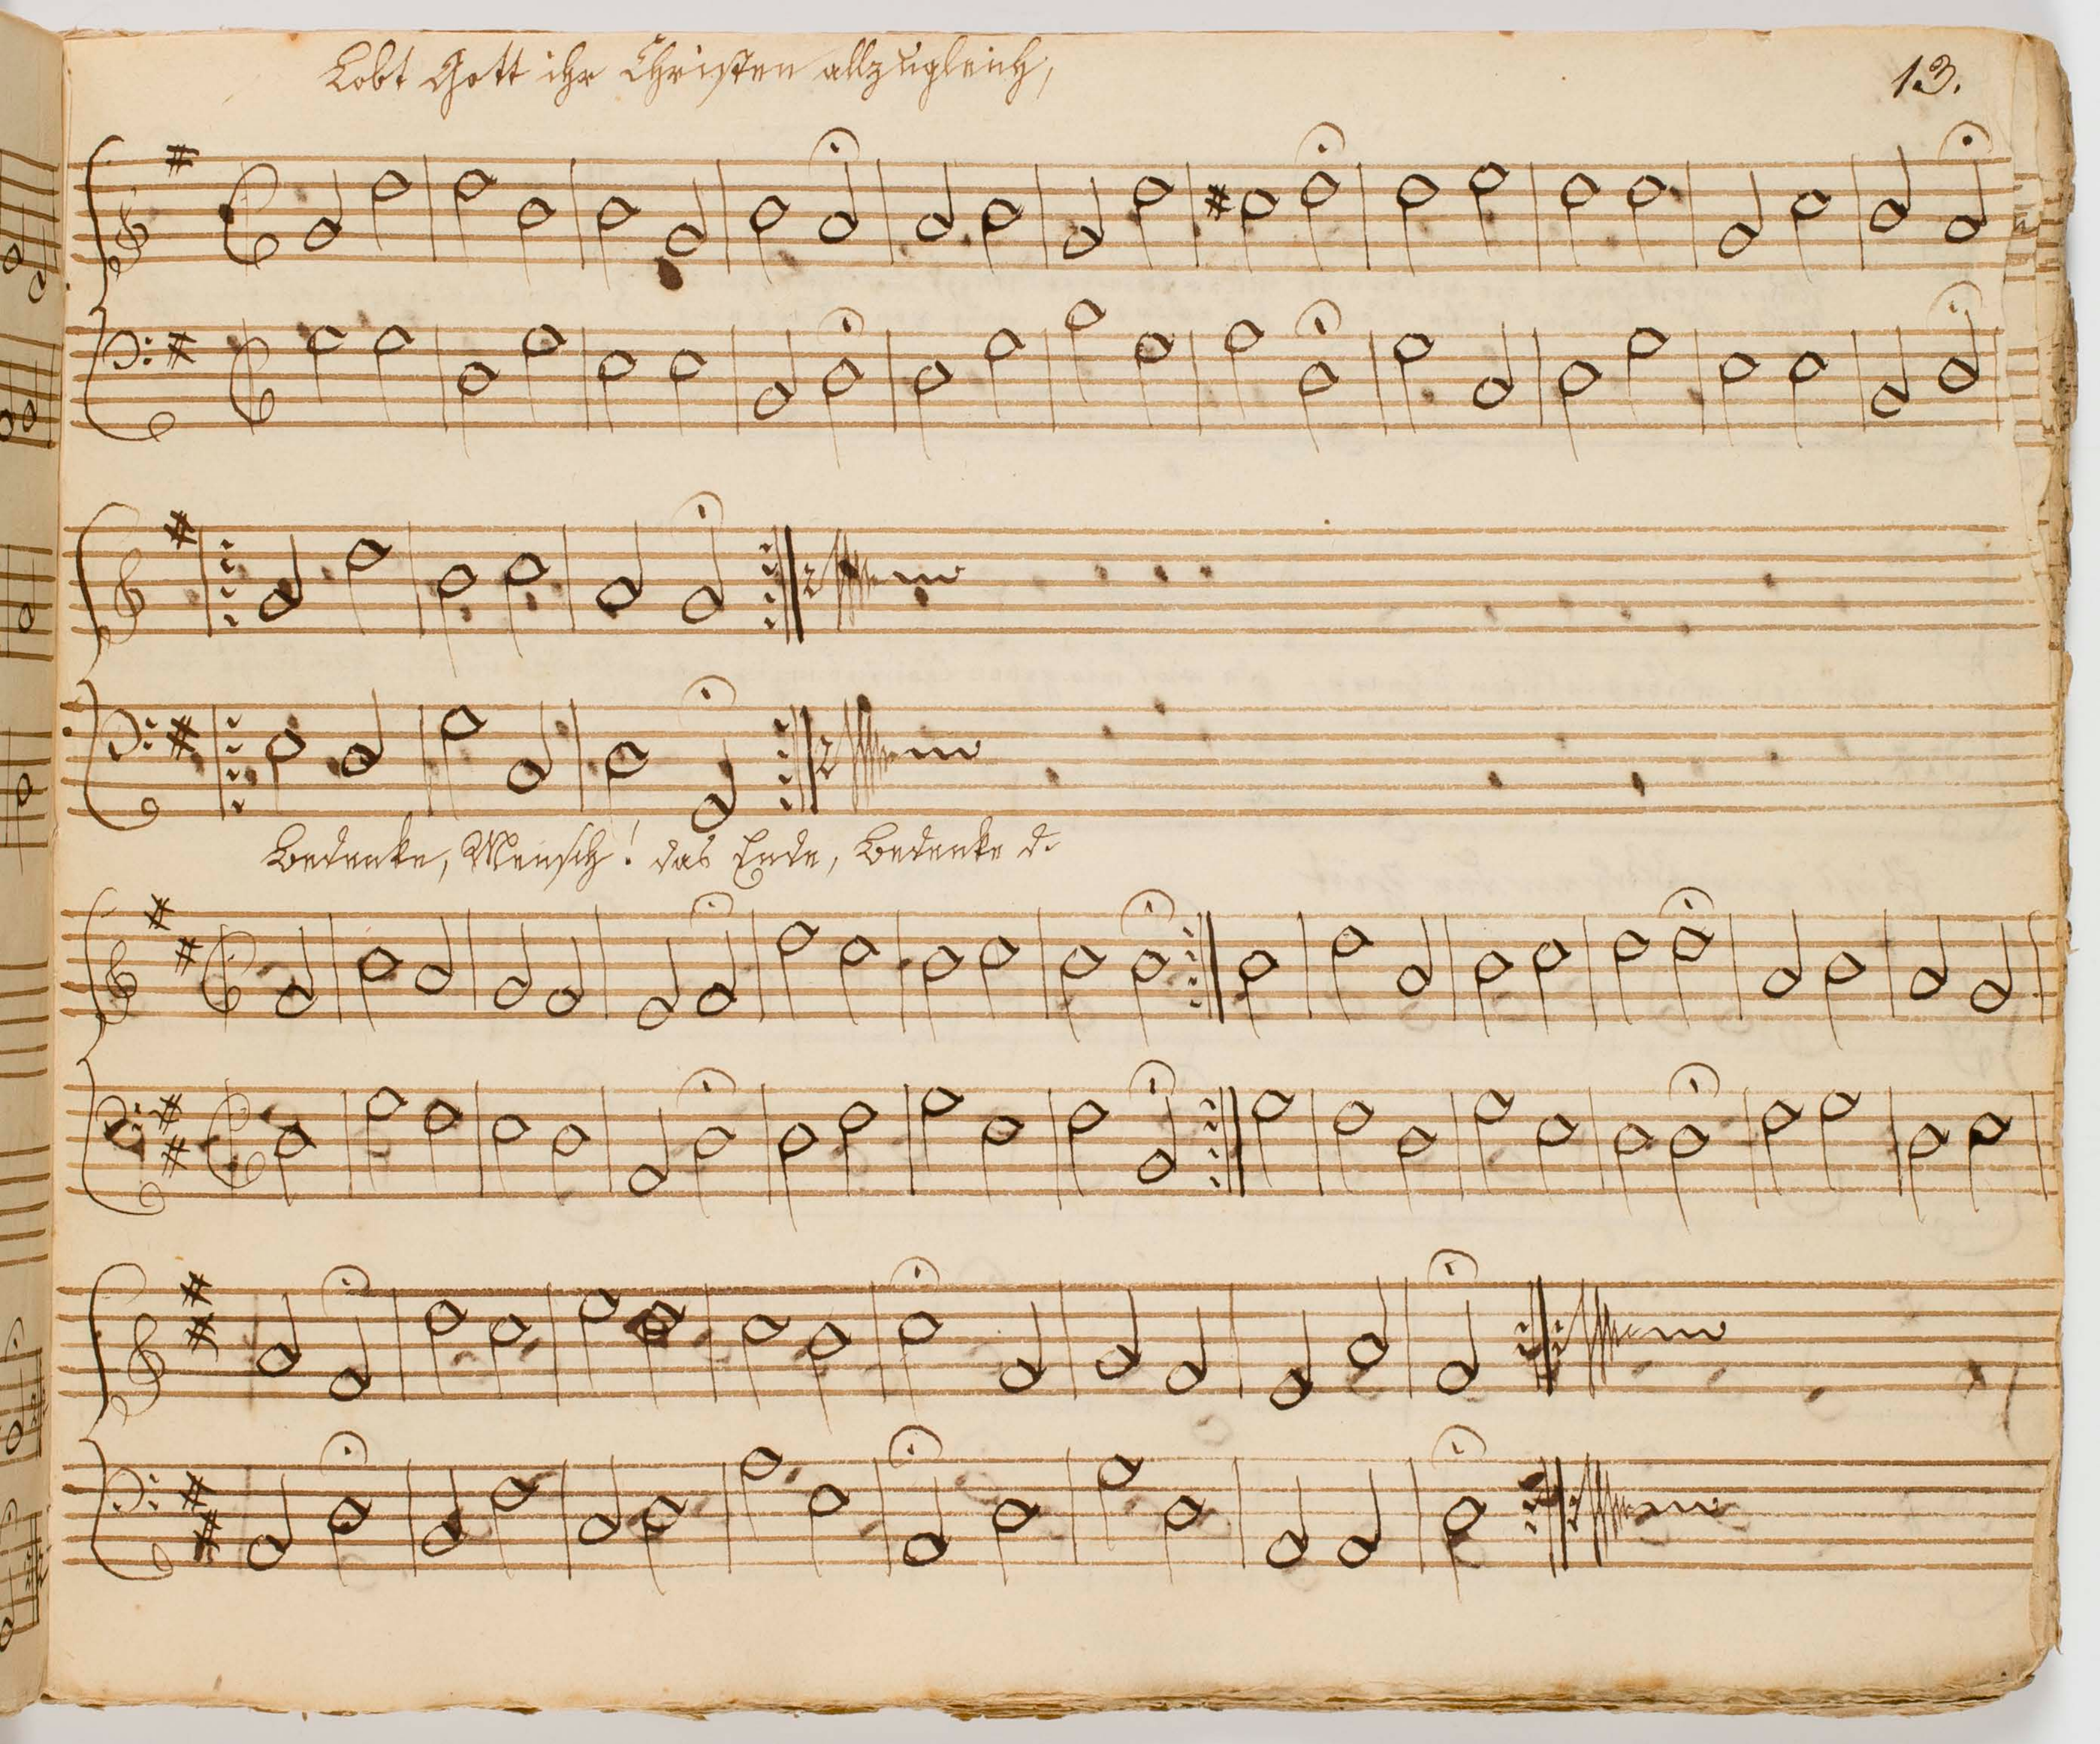 Lobt Gott ihr Christen allzugleich,
13.
Bedenke, Mensch! das Ende, Bedenke d.